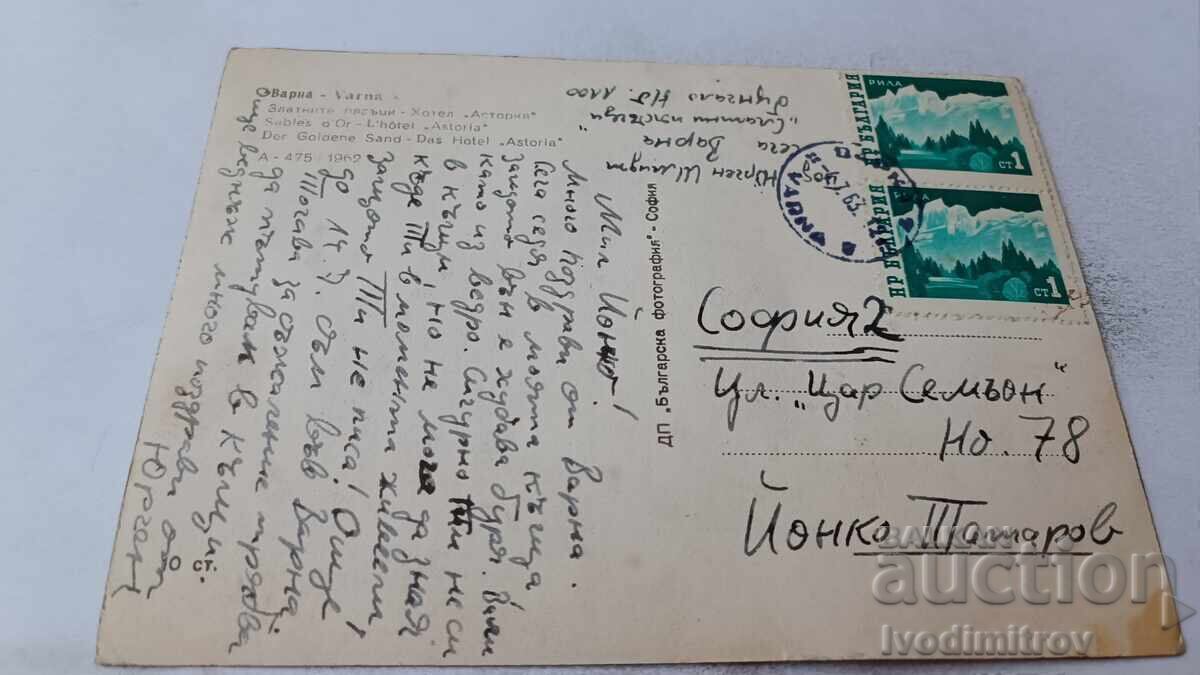 Варна - Varna -
Златните пясъци - Хотел "Астория"
Sables d'Or - L'hôtel "Astoria"
Der Goldene Sand - Das Hotel "Astoria"
А - 475 / 1962
Юрген Шмидт
сега Варна
"Златни пясъци"
бунгало No. 1100
Мил Йонко!
Много поздрави от Варна.
Сега седя в моята къща
защото вън е хубава буря. Вали
като из ведро. Сигурно Ти не си
в къщи, но не мога да зная
къде Ти в момента живееш,
защото Ти не писа! Още
до 14.7. съм във Варна,
Тогава за съжаление трябва
да пътувам в къщи.
още веднъж много поздрави от
Юрген
0 ст.
ДП "Българска фотография" - София
РИЛА
НР БЪЛГАРИЯ
СТ 1
НР БЪЛГАРИЯ
СТ 1
VARNA
София 2
ул. "Цар Семьон"
No. 78
Йонко Татаров
БАЛКАН
auction
Ivodimitrov